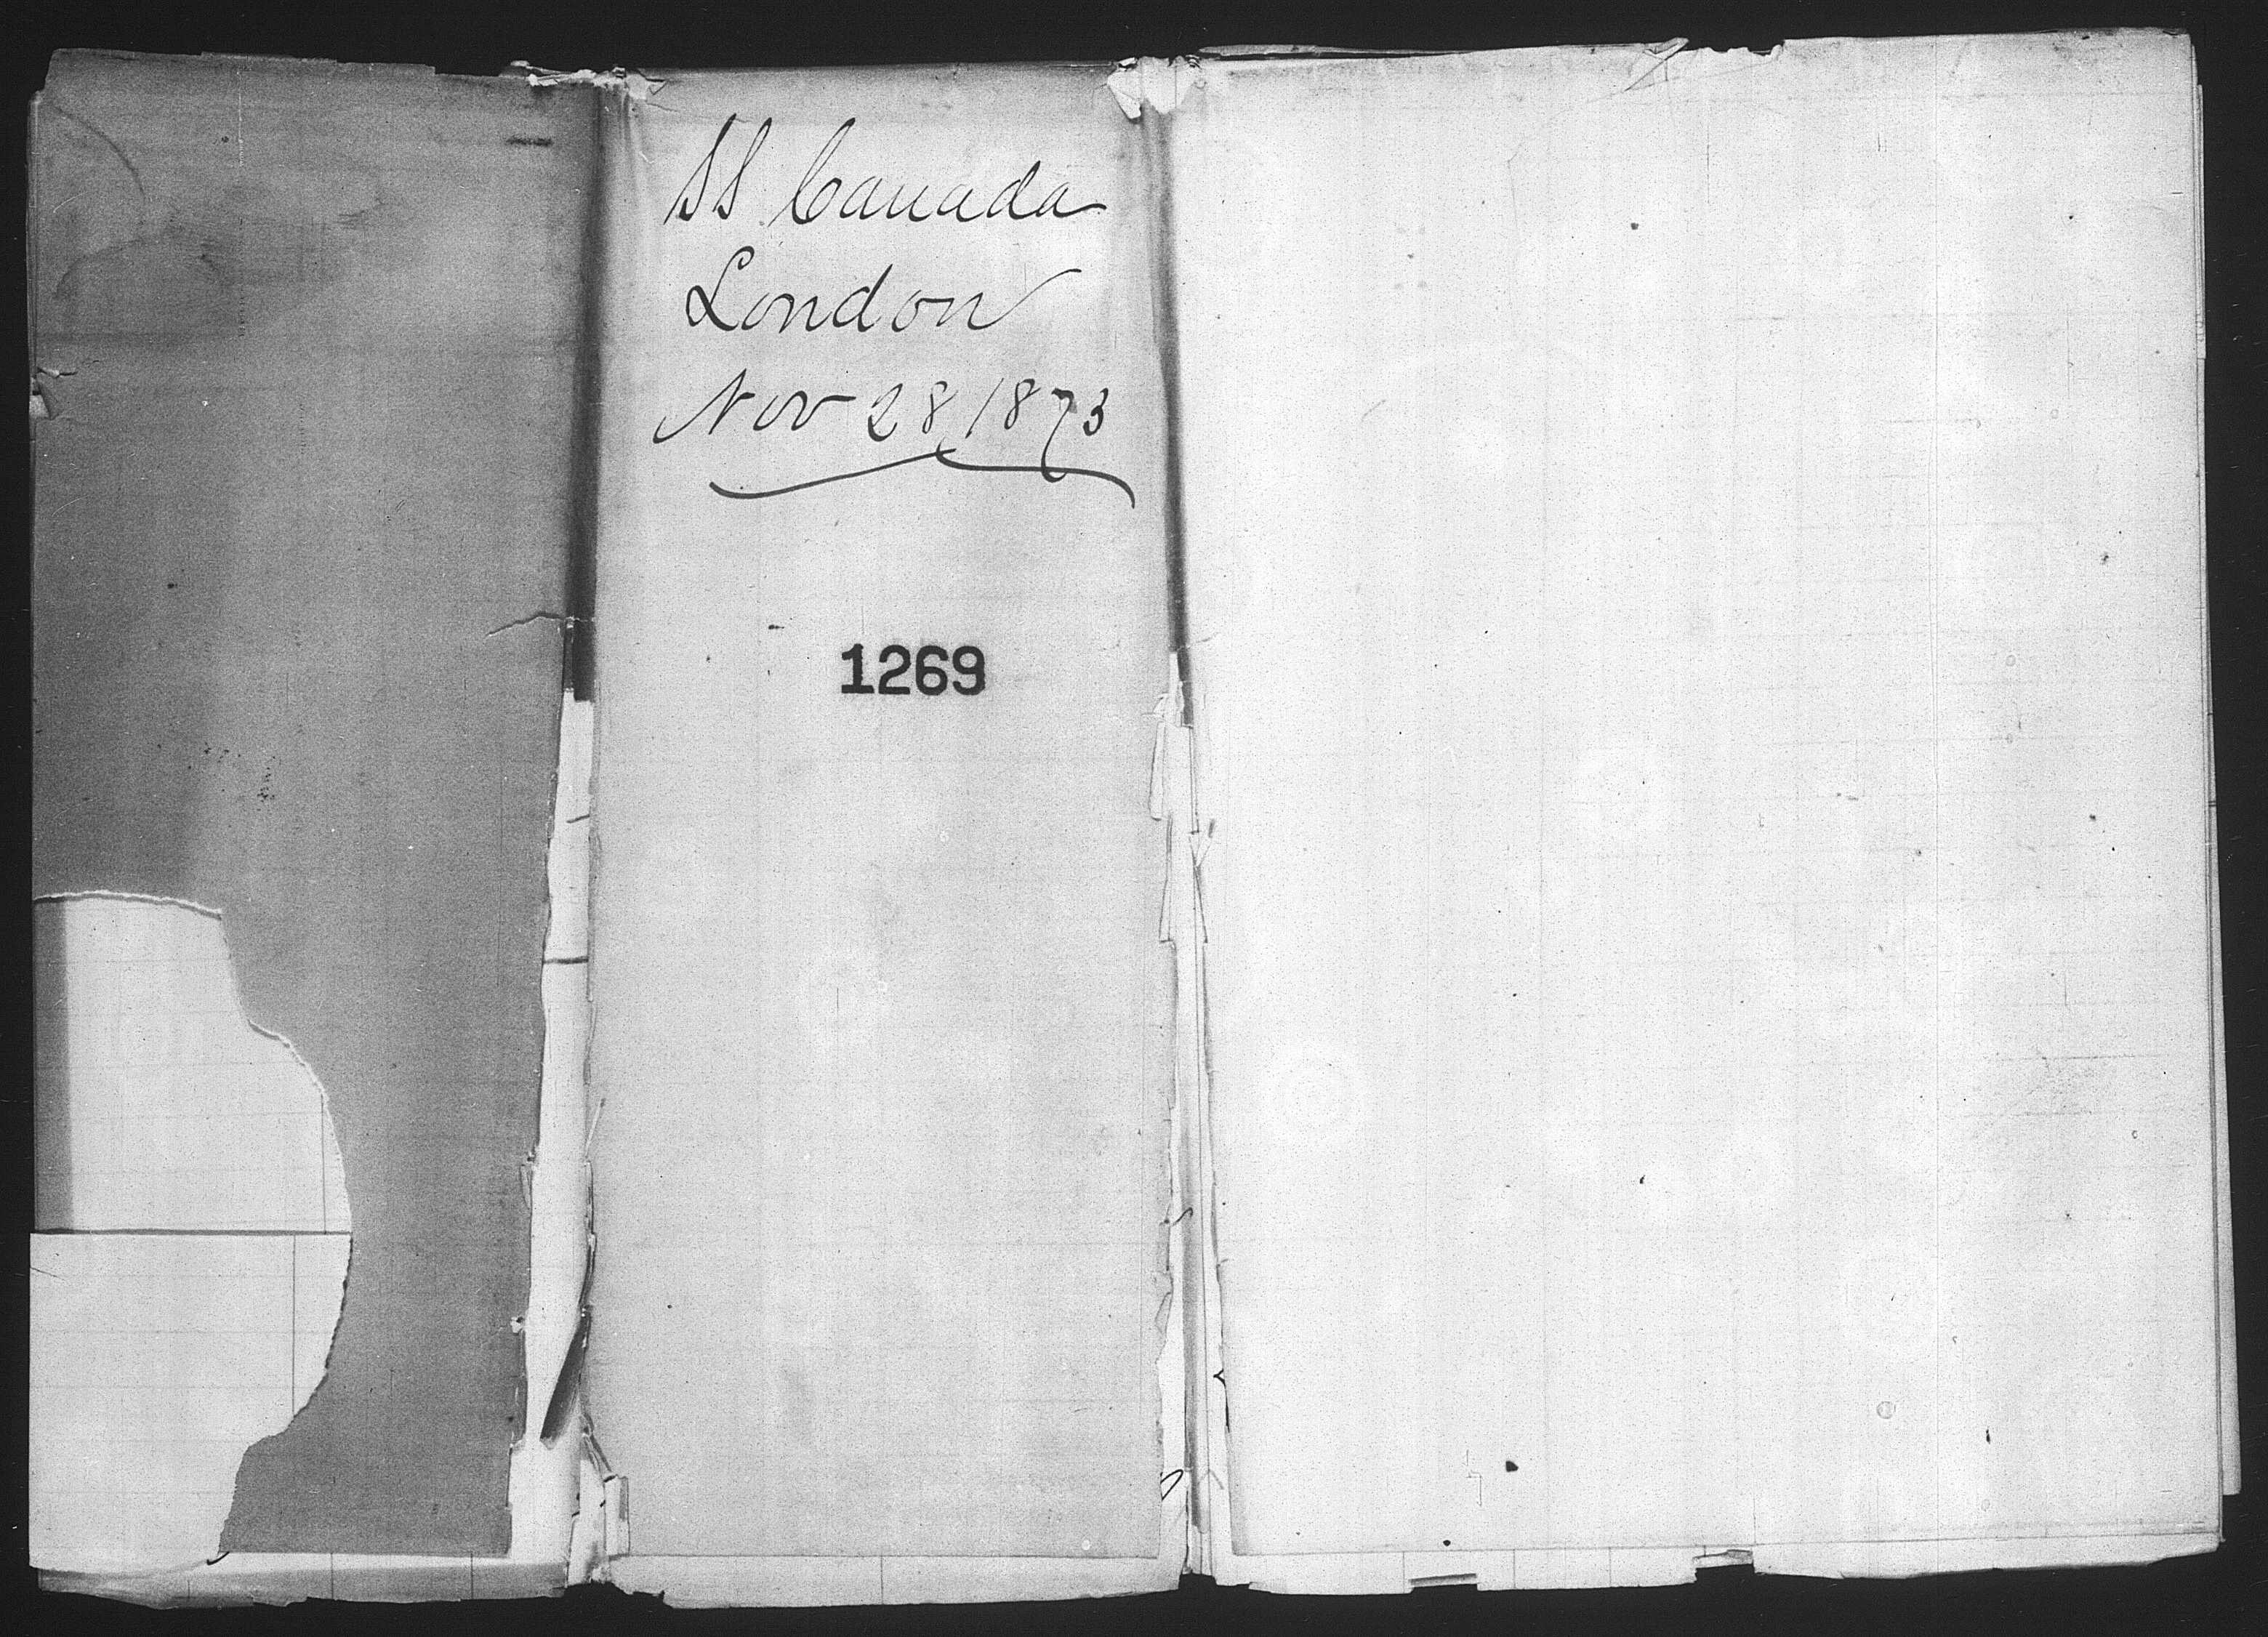 SS Canada
London
Nov 28 1873
1269